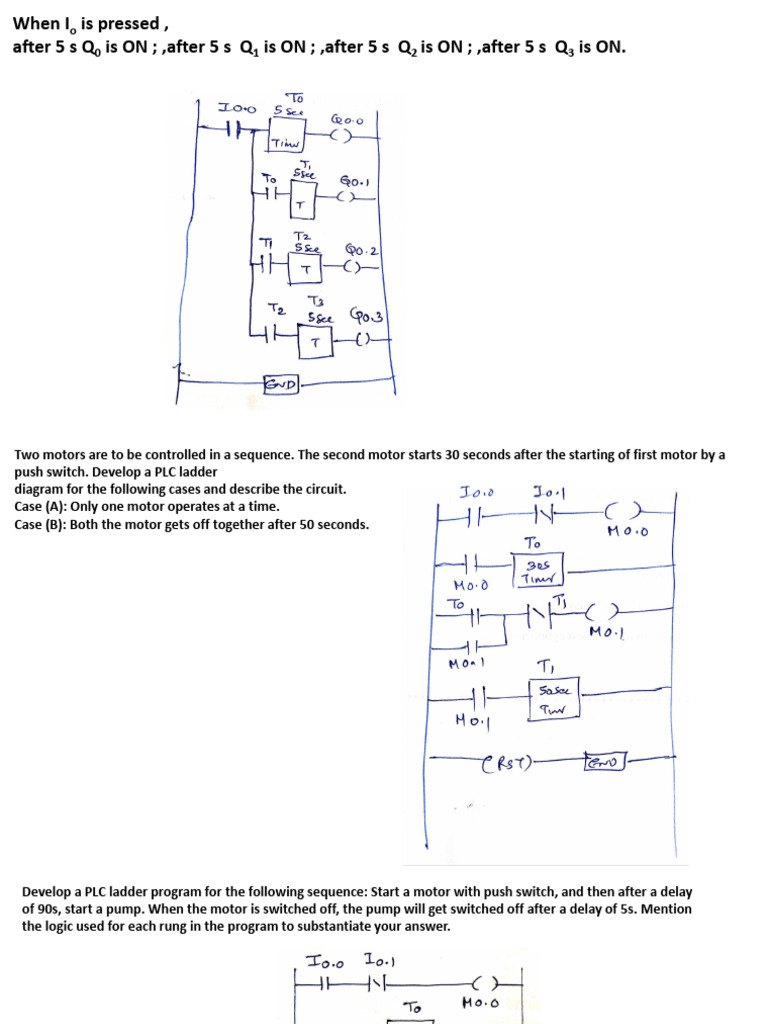 When I₀ is pressed ,
after 5 s Q₀ is ON ; ,after 5 s Q₁ is ON ; ,after 5 s Q₂ is ON ; ,after 5 s Q₃ is ON.
To
I0.0 5 Sec Q0.0
Timer
T1
To 5sec Q0.1
T
T2
T1 5 Sec Q0.2
T
T3
T2 5sec Q0.3
T
END
Two motors are to be controlled in a sequence. The second motor starts 30 seconds after the starting of first motor by a
push switch. Develop a PLC ladder
diagram for the following cases and describe the circuit.
Case (A): Only one motor operates at a time.
Case (B): Both the motor gets off together after 50 seconds.
I0.0 I0.1
M0.0
To
30s
M0.0 Timer
To T1
M0.1
M0.1 T1
50sec
M0.1 Timer
(RST) END
Develop a PLC ladder program for the following sequence: Start a motor with push switch, and then after a delay
of 90s, start a pump. When the motor is switched off, the pump will get switched off after a delay of 5s. Mention
the logic used for each rung in the program to substantiate your answer.
I0.0 I0.1
To M0.0